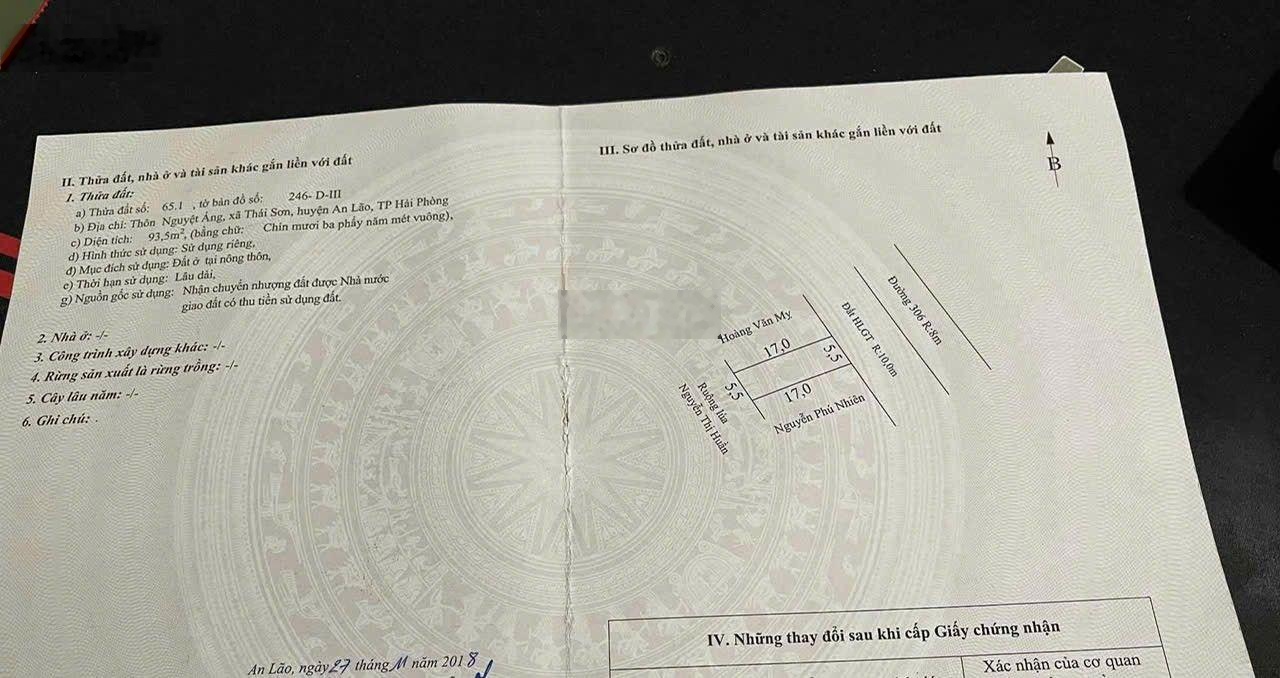 II. Thửa đất, nhà ở và tài sản khác gắn liền với đất
1. Thửa đất:
a) Thửa đất số: 65.1 , tờ bản đồ số: 246- D-III
b) Địa chỉ: Thôn Nguyệt Áng, xã Thái Sơn, huyện An Lão, TP Hải Phòng
c) Diện tích: 93,5m², (bằng chữ: Chín mươi ba phẩy năm mét vuông),
d) Hình thức sử dụng: Sử dụng riêng,
đ) Mục đích sử dụng: Đất ở tại nông thôn,
e) Thời hạn sử dụng: Lâu dài,
g) Nguồn gốc sử dụng: Nhận chuyển nhượng đất được Nhà nước
giao đất có thu tiền sử dụng đất.
2. Nhà ở: -/-
3. Công trình xây dựng khác: -/-
4. Rừng sản xuất là rừng trồng: -/-
5. Cây lâu năm: -/-
6. Ghi chú: .
An Lão, ngày 27 tháng 11 năm 2018
III. Sơ đồ thửa đất, nhà ở và tài sản khác gắn liền với đất
B
Đường 306 R:8m
Đất HLGT R:10,0m
Hoàng Văn My
17,0
5,5
5,5
17,0
Nguyễn Phú Nhiên
Ruộng lúa
Nguyễn Thị Huân
IV. Những thay đổi sau khi cấp Giấy chứng nhận
Xác nhận của cơ quan